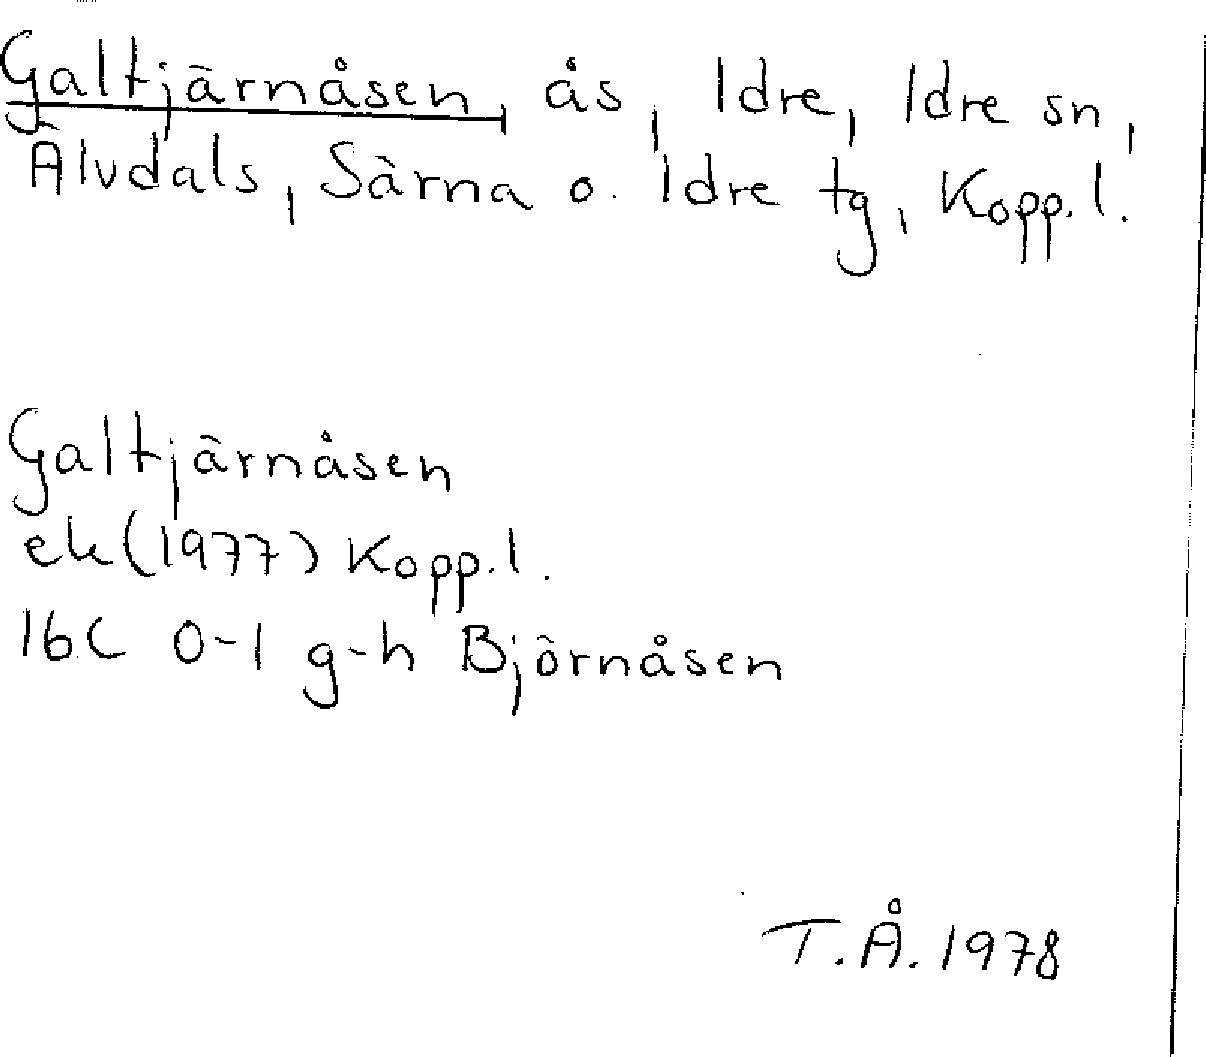 Galtjärnåsen, ås, Idre, Idre sn,
Älvdals, Särna o. Idre tg, Kopp. l.
Galtjärnåsen
ek (1977) Kopp. l.
16C 0-1 g-h Björnåsen
T.Å. 1978